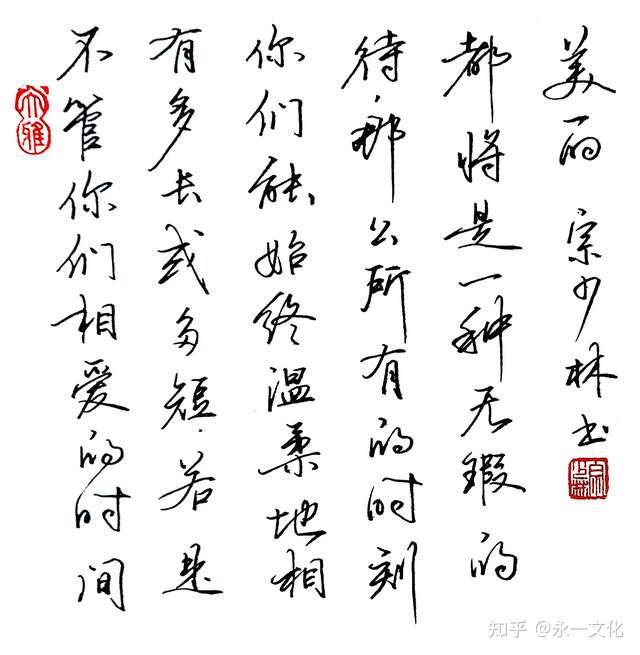 不管你们相爱的时间
有多长或多短，若是
你们能始终温柔地相
待，那么所有的时刻
都将是一种无瑕的
美丽 宗少林书
大雅
知乎 @永一文化